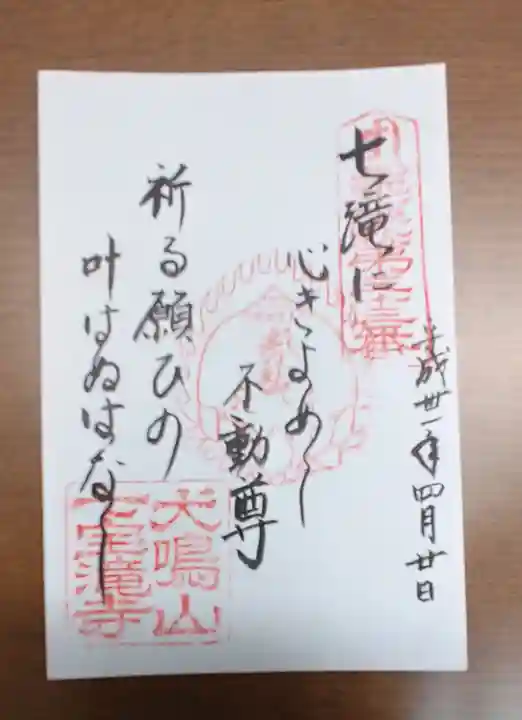 七滝に
心きよめし
不動尊
祈る願ひの
叶はぬはなし
平成卅一年四月廿日
犬鳴山
七宝瀧寺